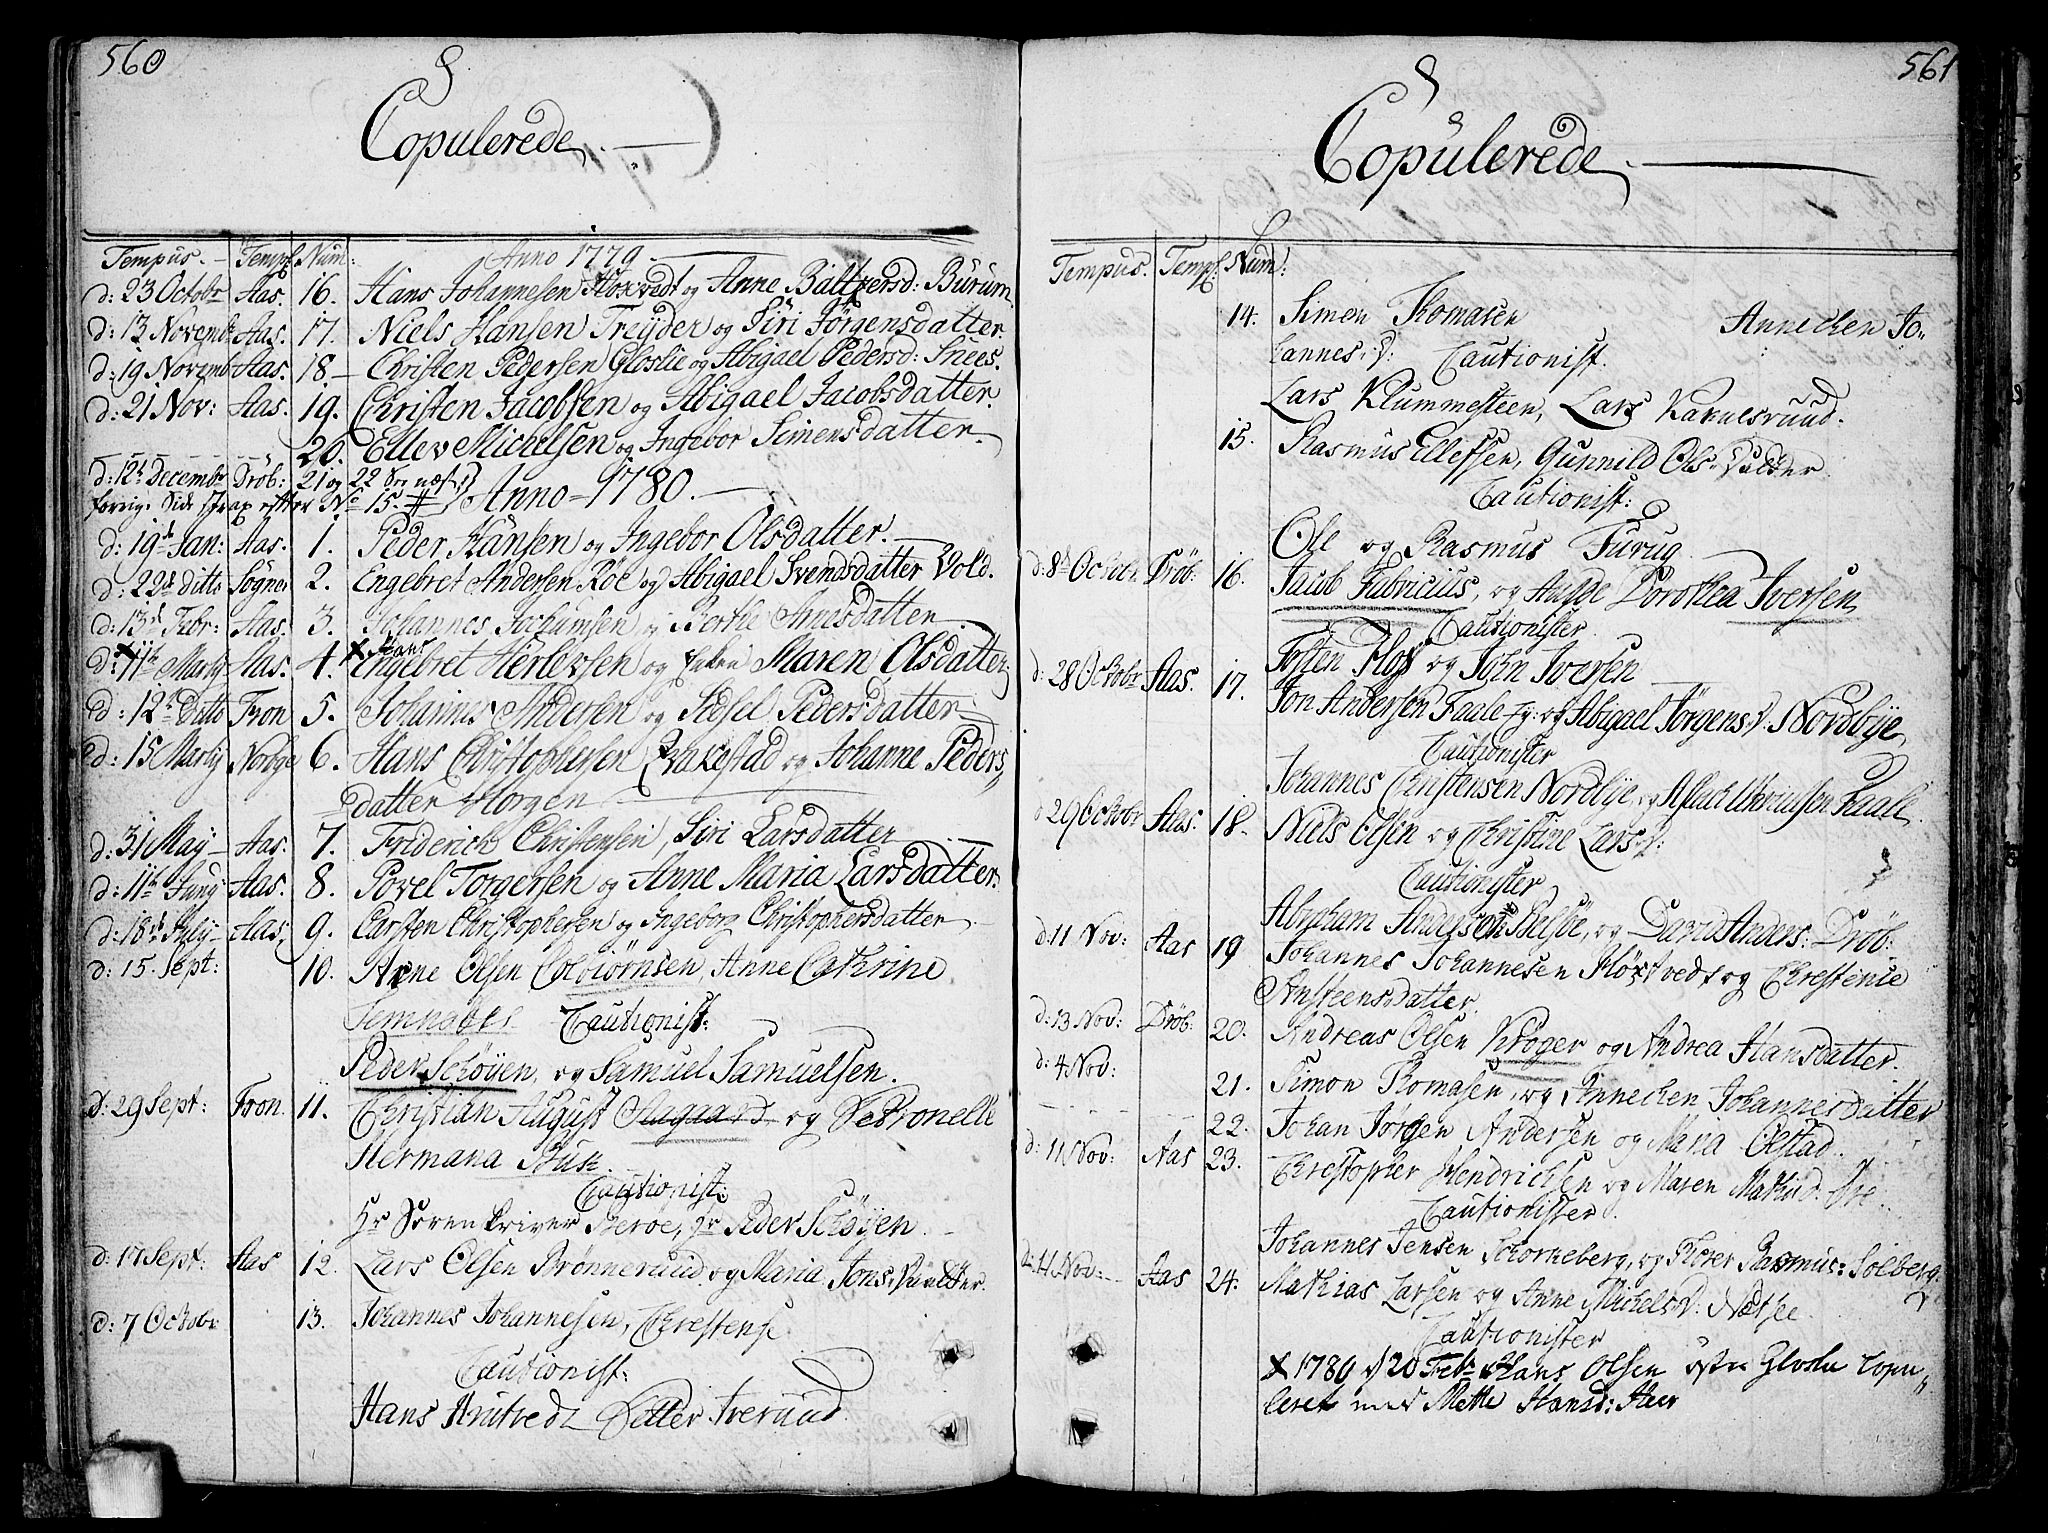 560
Copulerede
Tempus. Templ. Num:
Anno 1779
d: 23 Octobr Aas. 16. Hans Johannesen Floxvedt og Anne Baltzersd: Burum
d: 13 Novemb Aas. 17. Niels Hansen Treyder og Siri Jörgensdatter.
d: 19 Novemb Aas. 18 Christen Pedersen Gloslie og Abigael Pedersd: Snees.
d: 21 Nov: Aas. 19. Christen Jacobsen og Abigael Jacobsdatter.
20. Ellev Michelsen og Ingebor Simensdatter.
d: 12t Decembr Dröb: 21 og 22
forrige Side strax efter No 15. # Anno 1780.
d: 19d Jan: Aas. 1. Peder Hansen og Ingebor Olsdatter.
d: 22d Ditto Sogne 2. Engebret Andersen Röe og Abigael Svendsdatter Vold.
d: 13d Febr: Aas. 3. Johannes Jochumsen og Berthe Arnesdatter
x Hans
d: 11t Martj Aas. 4. Engebret Herlevsen og Maren Olsdatter
d: 12t Ditto Fron 5. Johannes Andersen og Sidsel Pedersdatter
d: 15 Martj Norbye 6. Hans Christophersen Krakestad og Johanne Peders
datter Horgen
d: 31 May Aas. 7. Friderich Christensen, Siri Larsdatter
d: 11t Junj Aas. 8. Povel Torgersen og Anne Maria Larsdatter.
d: 18d July Aas. 9. Carsten Christophersen og Ingeborg Christophersdatter
d: 15. Sept: 10. Arne Olsen Colbiörnsen, Anne Cathrine
Cautionist:
Peder Schöyen, og Samuel Samuelsen.
d: 29 Sept: Fron. 11. Christian August Olagaard og Petronelle
Hermana Buk.
Cautionist:
Hr Sorenskriver Beroe, Hr Peder Schöyen
d: 17 Sept: Aas 12. Lars Olsen Brönnerund og Maria Jons
d: 7 Octobr 13. Johannes Johannesen, Chrestense
Cautionist:
Hans Petter Iverund
561
Copulerede
Tempus. Templ: Num:
14. Simen Thomasen Annechen Jo-
hannes: d: Cautionist.
Lars Klummesteen, Lars
15. Rasmus Ellefsen, Gunnild Ols
Cautionist:
Ole og Rasmus Furug
d: 8d Octobr Dröb: 16. Jacob Fabricius, og Dorothea Iversen
Cautionister
Tosten Flox og John Iversen
d: 28 Octobr Aas. 17. Jon Andersen Faale og Abigael Jörgens: d: Nordbye
Cautionister
Johannes Christensen Nordbye, og Faale
29 Octobr Aas. 18. Niels Olsen og Christine Lars d:
Cautionister
Abraham Andersen Belsöe, og David Anders: Dröb:
d: 11 Nov: Aas 19 Johannes Johannesen Floxtvedt og Chrestense
Ansteensdatter.
d: 13 Nov: Dröb: 20. Andreas Olsen Kröger og Andrea Hansdatter.
d: 4 Nov: 21. Simon Thomasen, og Annechen Johannesdatter
22. Johan Jörgen Andersen og Maria Oestad.
d: 11 Nov: Aas 23. Chrestopher Hendrichsen og Maren
Cautionister.
Johannes Jensen Schorkeberg, og Rasmus: Solberg
d: 11 Nov: Aas 24. Mathias Larsen og Anne Michels D: Næsse
Cautionister
x 1780 d 20 Feb: Hans Olsen Copu
leret med Mette Hansd: Heer